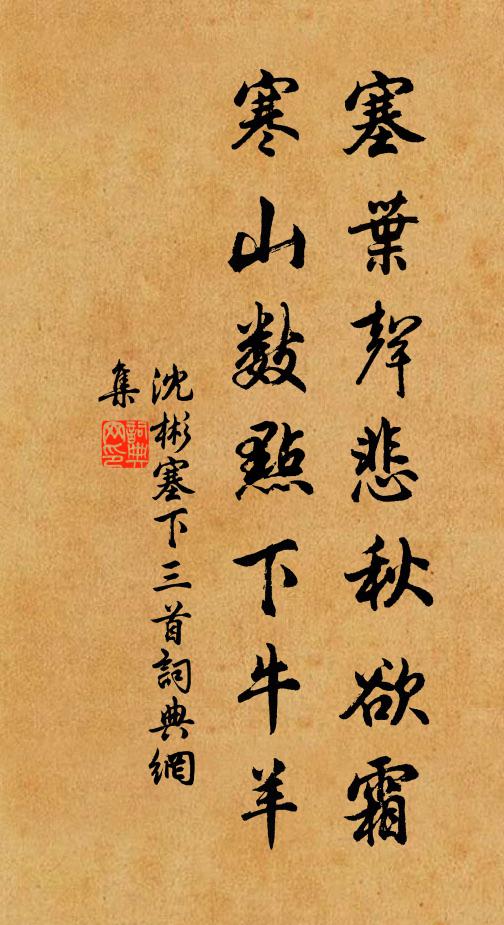 塞葉聲悲秋欲霜
寒山數點下牛羊
沈彬塞下三首詞典網
集
詞典網印